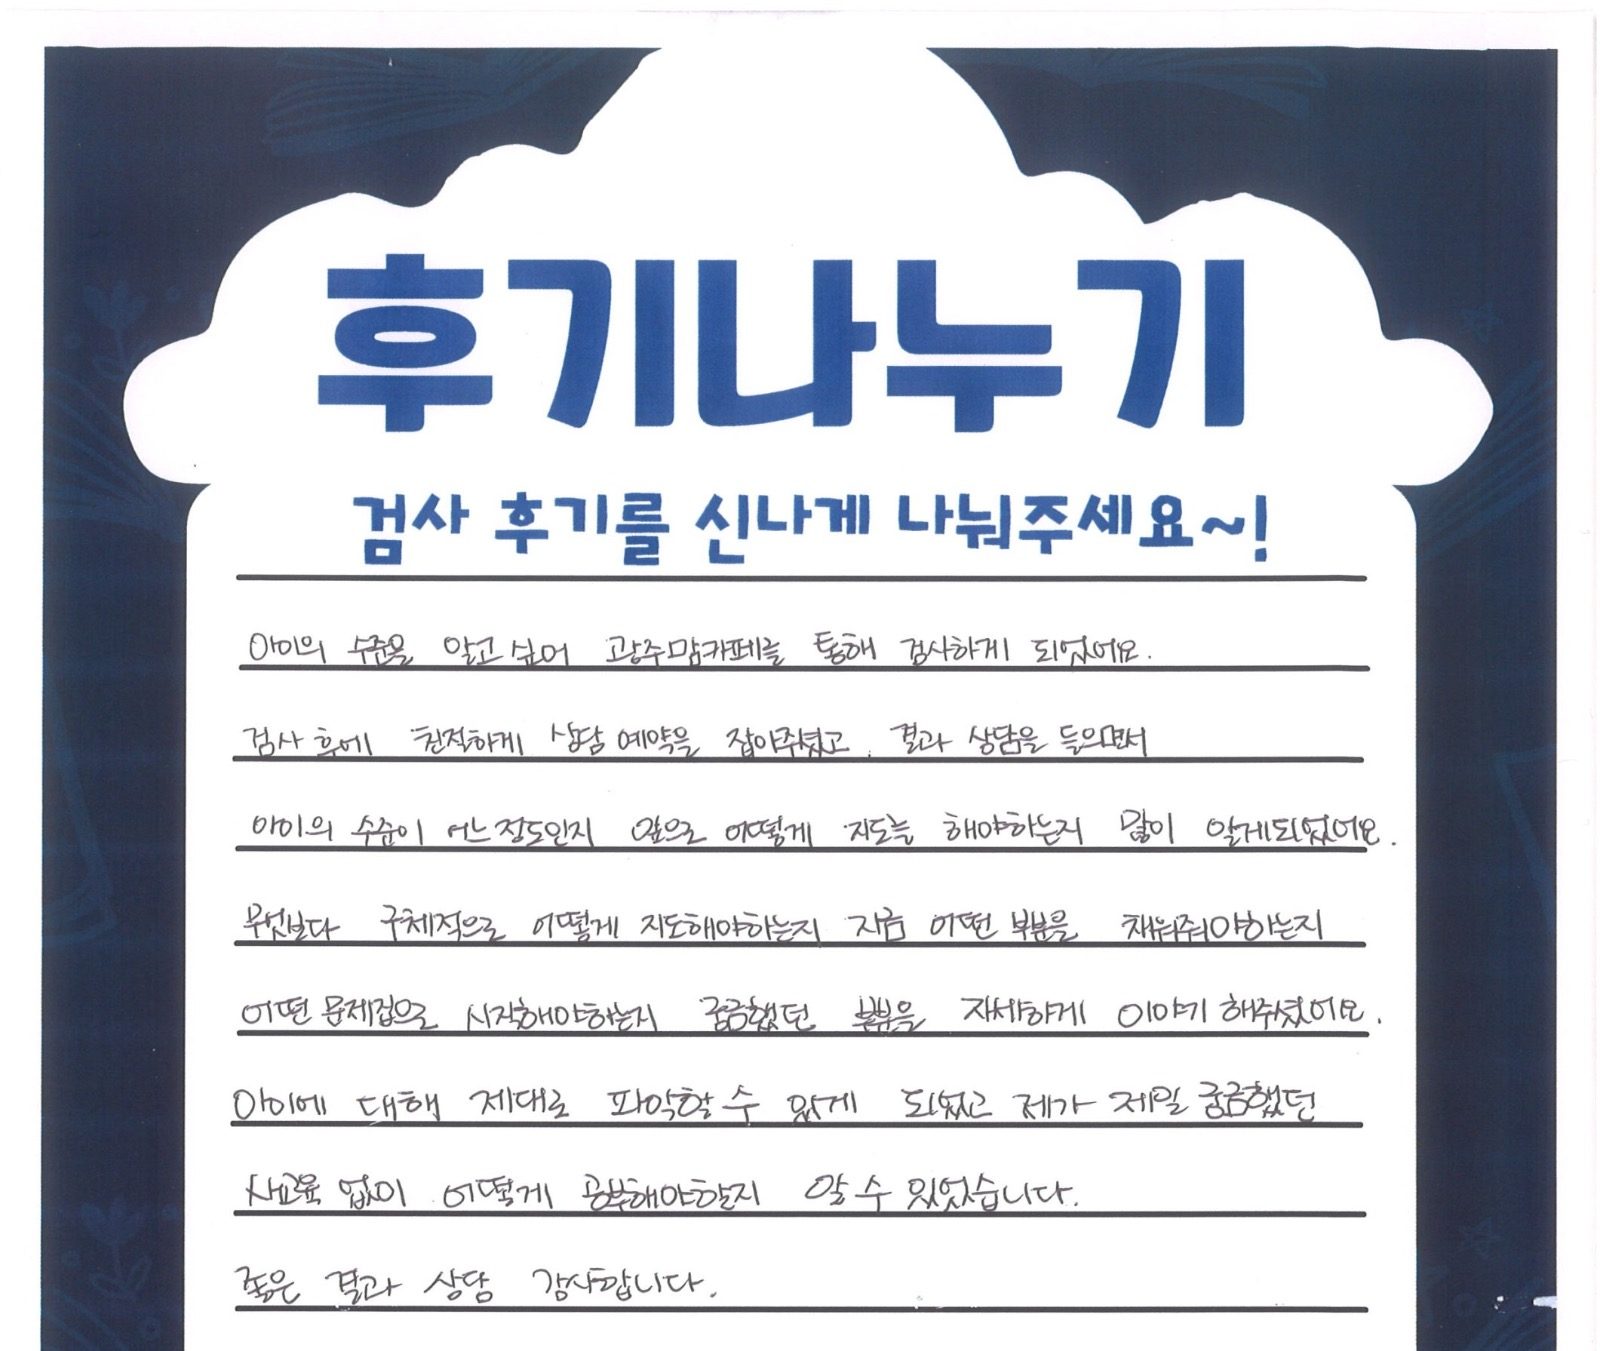 후기나누기
검사 후기를 신나게 나눠주세요~!
아이의 수준을 알고 싶어 광주맘카페를 통해 검사하게 되었어요.
검사 후에 친절하게 상담 예약을 잡아주셨고, 결과 상담을 들으면서
아이의 수준이 어느정도인지 앞으로 어떻게 지도를 해야하는지 많이 알게되었어요.
무엇보다 구체적으로 어떻게 지도해야하는지 지금 어떤 부분을 채워줘야하는지
어떤 문제집으로 시작해야하는지 궁금했던 부분을 자세하게 이야기 해주셨어요.
아이에 대해 제대로 파악할 수 있게 되었고 제가 제일 궁금했던
사교육 없이 어떻게 공부해야할지 알 수 있었습니다.
좋은 결과 상담 감사합니다.